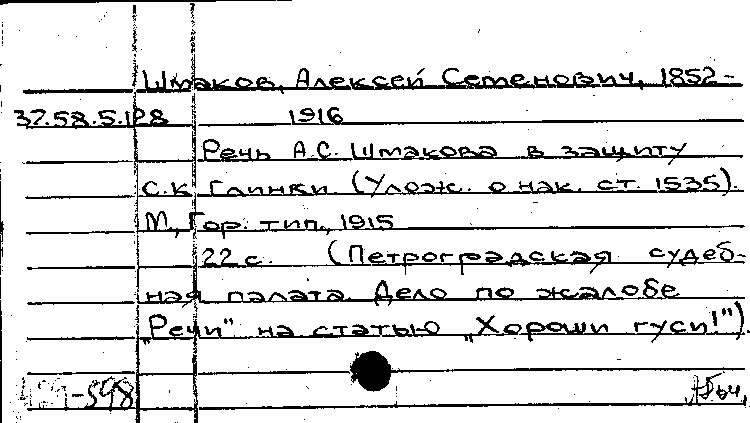 Шмаков, Алексей Семенович, 1852-
37.58.5.128 1916
Речь А.С. Шмакова в защиту
С.К Глинки. (Улож. о нак. ст. 1535).
М., Гор. тип., 1915
22 с. (Петроградская судеб-
ная палата. Дело по жалобе
„Речи" на статью „Хороши гуси!").
-598